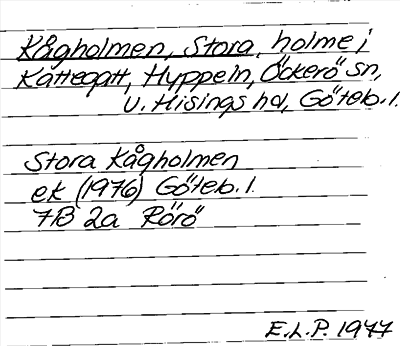 Kågholmen, Stora, holme i
Kattegatt, Hyppeln, Öckerö sn,
V. Hisings hd, Göteb. l.
Stora Kågholmen
ek (1976) Göteb. l.
7B 2a Rörö
E.L.P. 1977